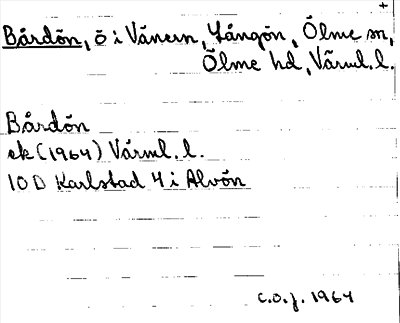 +
Bårdön, ö i Vänern, Yångön, Ölme sn,
Ölme hd, Värml. l.
Bårdön
ek (1964) Värml. l.
10 D Karlstad 4 i Alvön
C.O.J. 1964